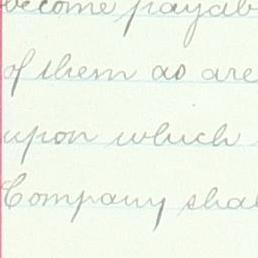 become payab
of them as are
upon which
Company shal